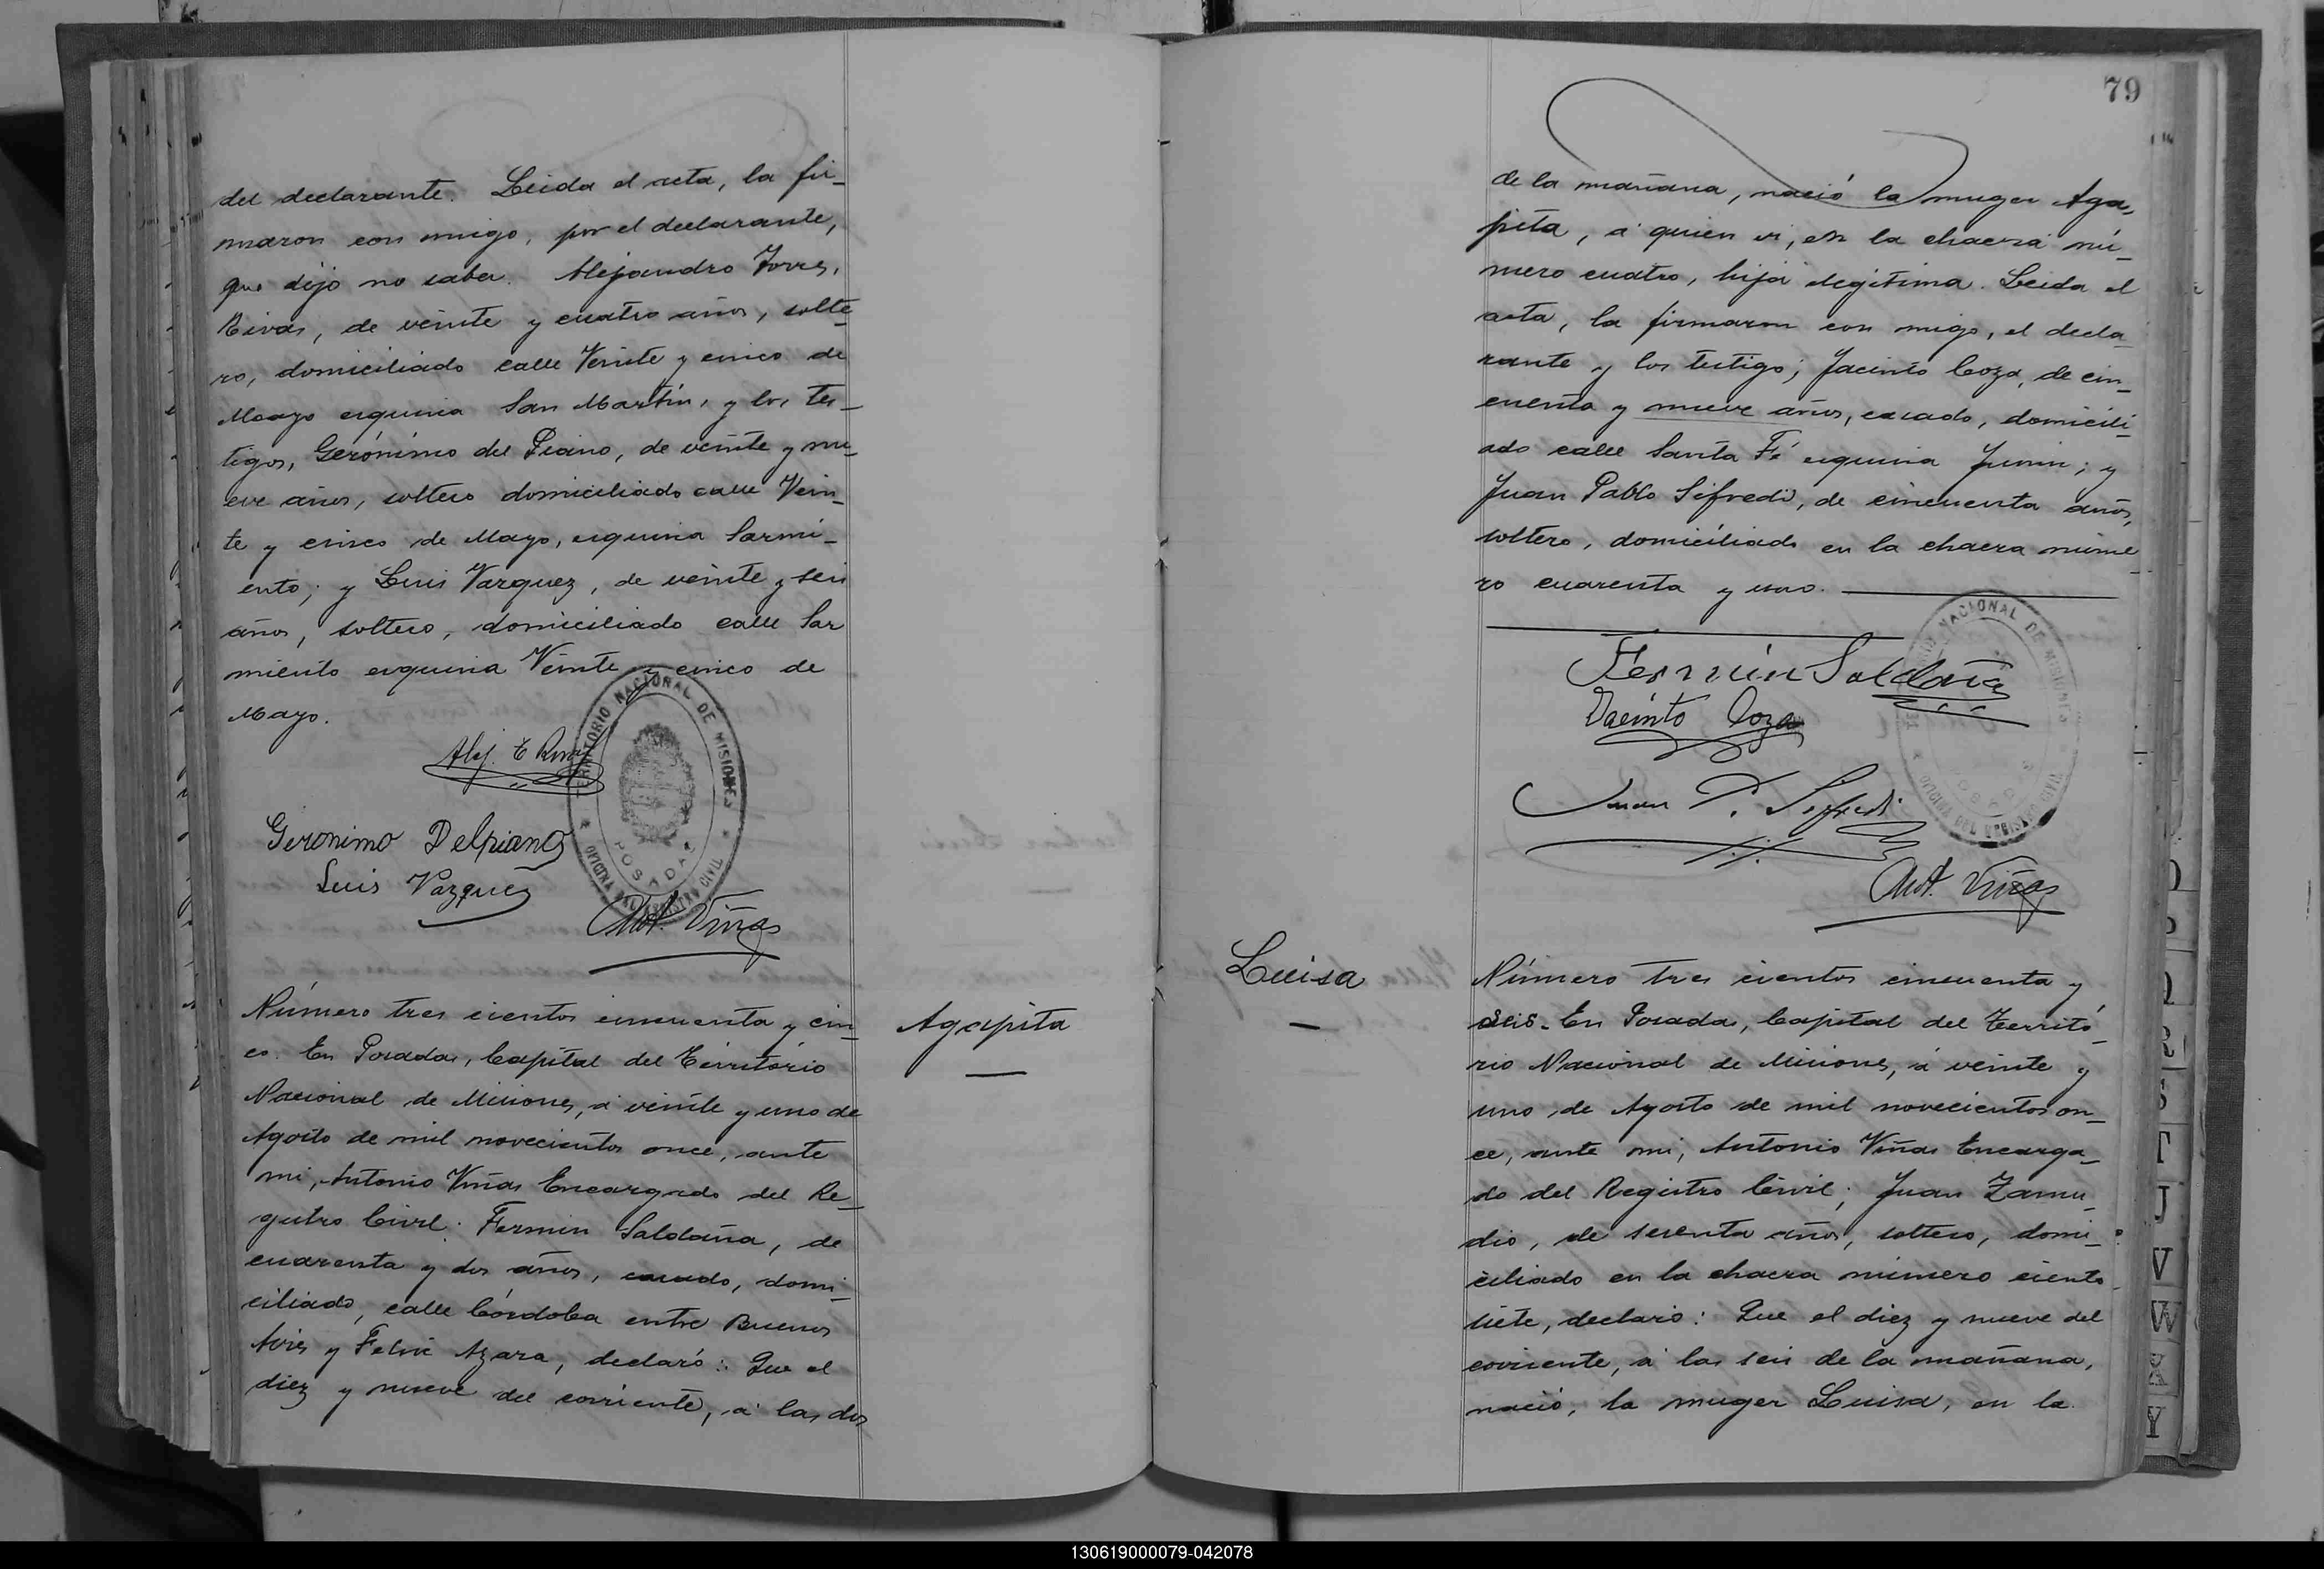 del declarante. Leida el acta, la fir_
maron con migo, por el declarante,
que dijo no saber. Alejandro Torres,
Rivas, de veinte y cuatro años, solte_
ro, domiciliado calle Veinte y cinco de
Mayo esquina San Martin, y los tes_
tigos, Gerónimo del Piano, de veinte y nu_
eve años, soltero domiciliado calle Vein_
te y cinco de Mayo, esquina Sarmi_
ento; y Luis Vazquez, de veinte y seis
años, soltero, domiciliado calle Sar
miento esquina Veinte y cinco de
Mayo.
Alej. T Rivas
Geronimo Delpiano
Luis Vazquez
TERRITORIO NACIONAL DE MISIONES
POSADAS
OFICINA DEL REGISTRO CIVIL
Ant. Viñas
Número tres cientos cincuenta y cin_
co. En Posadas, Capital del Territorio
Nacional de Misiones, á veinte y uno de
Agosto de mil novecientos once, ante
mi, Antonio Viñas Encargado del Re_
gistro Civil: Fermin Saldaña, de
cuarenta y dos años, casado, domi_
ciliado, calle Córdoba entre Buenos
Aires y Felix Azara, declaró: Que el
diez y nueve del corriente, á las dos
Agapita
79
de la mañana, nació la muger Aga_
pita, á quien vi, en la chacra nú_
mero cuatro, hija legitima. Leida el
acta, la firmaron con migo, el decla_
rante y los testigo; Jacinto Coza, de cin_
cuenta y nueve años, casado, domicili_
ado calle Santa Fé esquina Junin; y
Juan Pablo Sifredi, de cincuenta años,
soltero, domiciliado en la chacra núme_
ro cuarenta y uno.
Fermin Saldaña
Jacinto Coza
Juan P. Sifredi
TERRITORIO NACIONAL DE MISIONES
POSADAS
OFICINA DEL REGISTRO CIVIL
Ant. Viñas
Luisa
Número tres cientos cincuenta y
seis. En Posadas, Capital del Territó_
rio Nacional de Misiones, á veinte y
uno de Agosto de mil novecientos on_
ce, ante mi, Antonio Viñas Encarga_
do del Registro Civil; Juan Zamu_
dio, de sesenta años, soltero, domi_
ciliado en la chacra número ciento
siete, declaró: Que el diez y nueve del
corriente, á las seis de la mañana,
nació, la muger Luisa, en la
R
S
T
J
V
W
X
Y
130619000079-042078